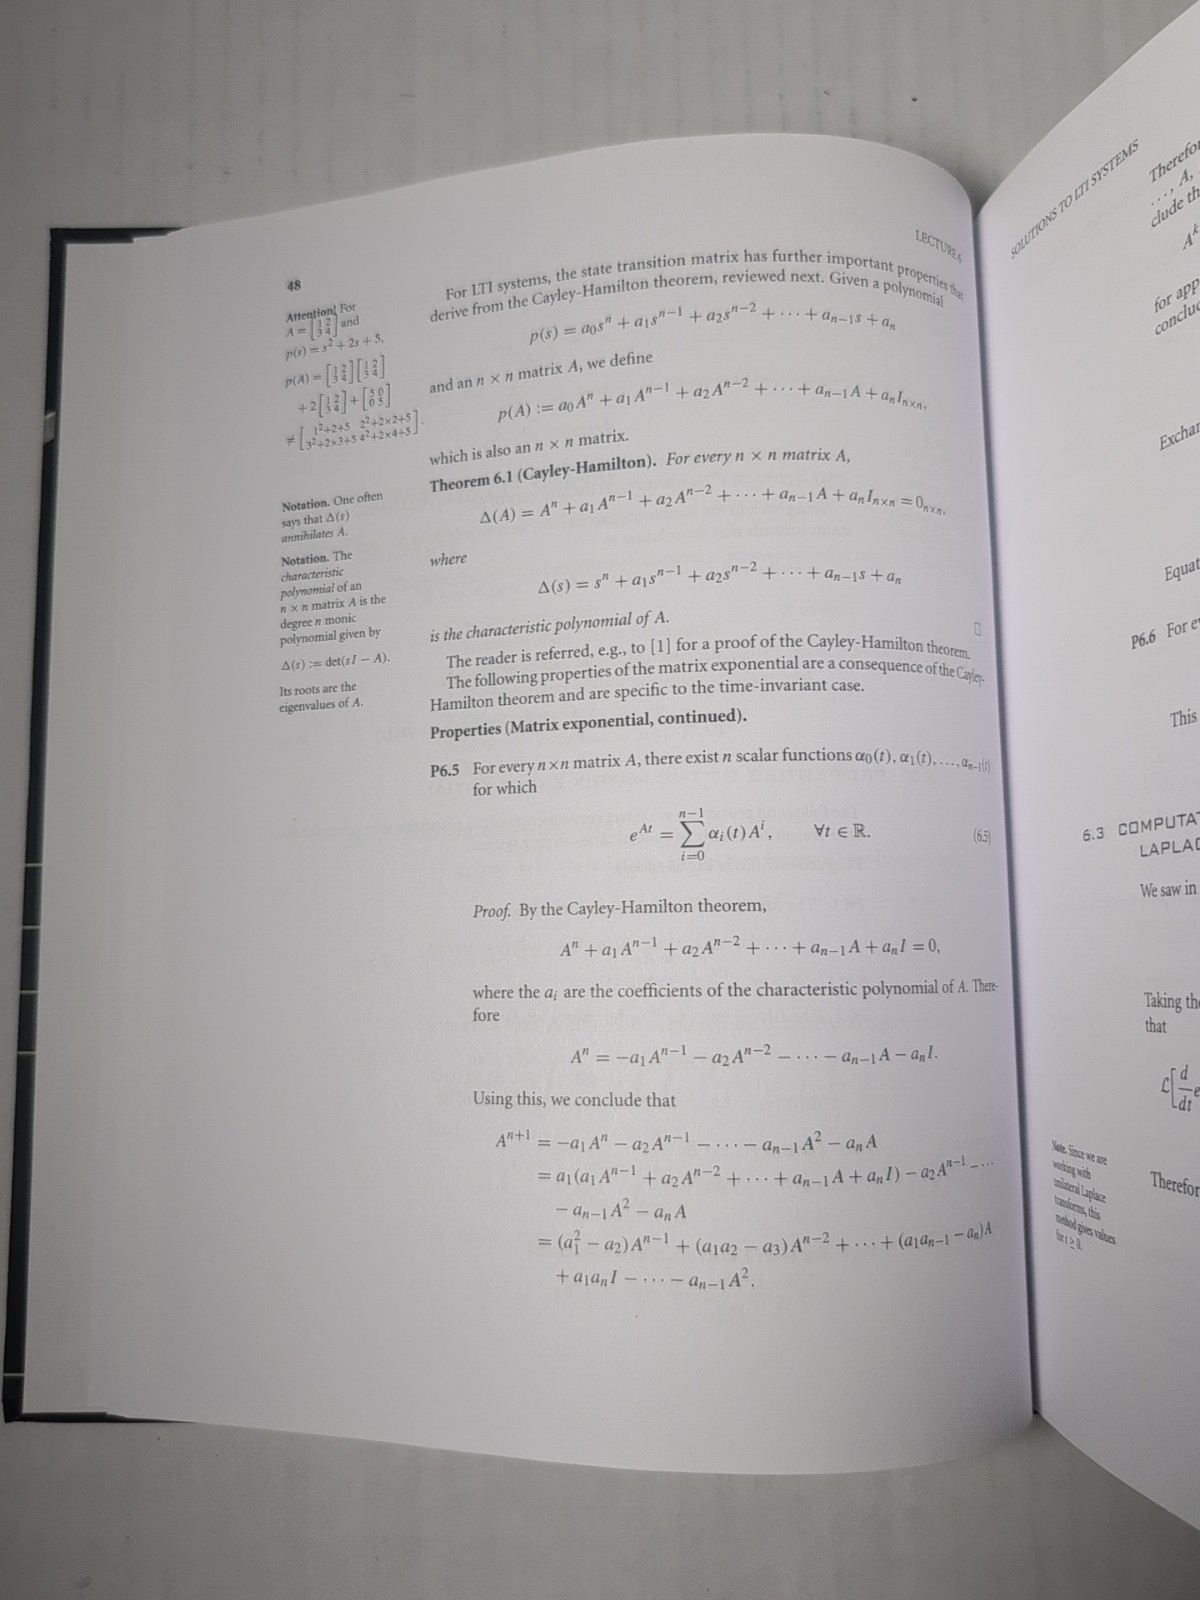 LECTURE 6
48
For LTI systems, the state transition matrix has further important properties that
derive from the Cayley-Hamilton theorem, reviewed next. Given a polynomial
p(s) = a₀sⁿ + a₁sⁿ⁻¹ + a₂sⁿ⁻² + ··· + aₙ₋₁s + aₙ
and an n × n matrix A, we define
p(A) := a₀Aⁿ + a₁Aⁿ⁻¹ + a₂Aⁿ⁻² + ··· + aₙ₋₁A + aₙIₙₓₙ,
which is also an n × n matrix.
Attention! For
A = [1 2; 3 4] and
p(s) = s² + 2s + 5,
p(A) = [1 2; 3 4][1 2; 3 4]
+ 2[1 2; 3 4] + [5 0; 0 5]
≠ [1²+2+5 2²+2×2+5; 3²+2×3+5 4²+2×4+5].
Theorem 6.1 (Cayley-Hamilton). For every n × n matrix A,
Δ(A) = Aⁿ + a₁Aⁿ⁻¹ + a₂Aⁿ⁻² + ··· + aₙ₋₁A + aₙIₙₓₙ = 0ₙₓₙ,
Notation. One often
says that Δ(s)
annihilates A.
where
Δ(s) = sⁿ + a₁sⁿ⁻¹ + a₂sⁿ⁻² + ··· + aₙ₋₁s + aₙ
is the characteristic polynomial of A. □
Notation. The
characteristic
polynomial of an
n × n matrix A is the
degree n monic
polynomial given by
Δ(s) := det(sI − A).
Its roots are the
eigenvalues of A.
The reader is referred, e.g., to [1] for a proof of the Cayley-Hamilton theorem.
The following properties of the matrix exponential are a consequence of the Cayley-
Hamilton theorem and are specific to the time-invariant case.
Properties (Matrix exponential, continued).
P6.5 For every n×n matrix A, there exist n scalar functions α₀(t), α₁(t), ..., αₙ₋₁(t)
for which
e^{At} = ∑_{i=0}^{n−1} αᵢ(t)Aⁱ, ∀t ∈ ℝ. (6.5)
Proof. By the Cayley-Hamilton theorem,
Aⁿ + a₁Aⁿ⁻¹ + a₂Aⁿ⁻² + ··· + aₙ₋₁A + aₙI = 0,
where the aᵢ are the coefficients of the characteristic polynomial of A. There-
fore
Aⁿ = −a₁Aⁿ⁻¹ − a₂Aⁿ⁻² − ··· − aₙ₋₁A − aₙI.
Using this, we conclude that
Aⁿ⁺¹ = −a₁Aⁿ − a₂Aⁿ⁻¹ − ··· − aₙ₋₁A² − aₙA
= a₁(a₁Aⁿ⁻¹ + a₂Aⁿ⁻² + ··· + aₙ₋₁A + aₙI) − a₂Aⁿ⁻¹ − ···
− aₙ₋₁A² − aₙA
= (a₁² − a₂)Aⁿ⁻¹ + (a₁a₂ − a₃)Aⁿ⁻² + ··· + (a₁aₙ₋₁ − aₙ)A
+ a₁aₙI − ··· − aₙ₋₁A².
SOLUTIONS TO LTI SYSTEMS
Therefo
..., A,
clude th
Aᵏ
for app
conclu
Exchan
Equat
P6.6 For e
This
6.3 COMPUTAT
LAPLAC
We saw in
Taking the
that
ℒ[d/dt e
Note. Since we are
working with
unilateral Laplace
transforms, this
method gives values
for t ≥ 0.
Therefor